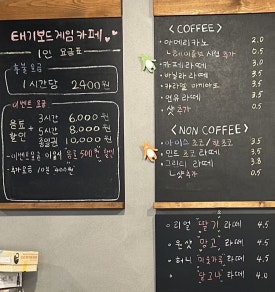 태기보드게임카페
1인 요금표
총불 요금
1시간당 2,400원
이벤트 요금
음료 + 할인
3시간 6,000원
5시간 8,000원
종일권 10,000원
-이벤트요금 이용시 "음료 500원 할인"
<COFFEE>
· 아메리카노 2.0
ㄴ헤이즐넛 시럽 추가 0.5
· 카페라떼 3.0
· 바닐라 라떼 3.5
· 카라멜 마끼아또 3.5
· 연유 라떼 3.5
· 샷 추가 0.5
<NON COFFEE>
· 아이스초코/핫초코 3.5
· 민트 초코 라떼 3.5
· 그린티 라떼 3.8
ㄴ샷추가 0.5
· 리얼 "딸기" 라떼 4.5
· 원샷 "망고" 라떼 4.5
· 허니 "미숫가루" 라떼 4.5
"달고나" 라떼 4.0